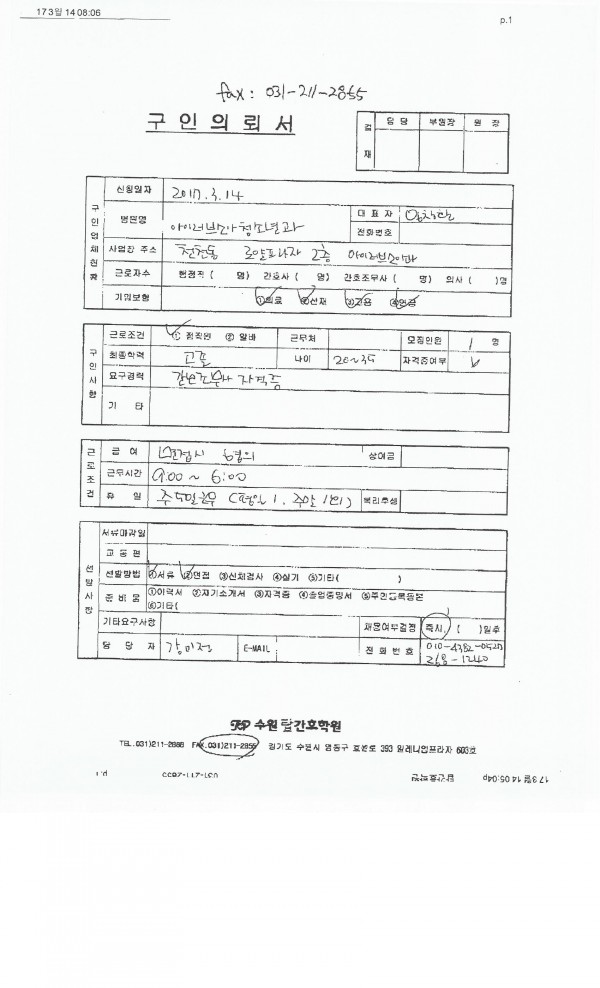 17 3월 14 08:06
p.1
fax : 031-211-2855
구 인 의 뢰 서
결 재
담 당 부원장 원 장
구인업체현황
신청일자 2017. 3. 14
병원명 아이러브소아청소년과
대 표 자
전화번호
사업장 주소 천천동 로얄프라자 2층 아이러브소아과
근로자수 현정직 ( 명) 간호사 ( 명) 간호조무사 ( 명) 의사 ( )명
가입보험 ①의료 ②산재 ③고용 ④연금
구인사항
근로조건 ① 정직원 ② 알바 근무처 모집인원 1 명
최종학력 고졸 나이 20~35 자격증여부 V
요구경력 간호조무사 자격증
기 타
근로조건
급 여 면접시 협의 상여금
근무시간 9:00 ~ 6:00
휴 일 주5일근무 (평일 1, 주말 1회) 복리후생
선발사항
서류마감일
교 통 편
선발방법 ①서류 ②면접 ③신체검사 ④실기 ⑤기타( )
준 비 물 ①이력서 ②자기소개서 ③자격증 ④졸업증명서 ⑤주민등록등본
⑥기타(
기타요구사항 채용여부결정 즉시, ( )일후
담 당 자 E-MAIL 전 화 번 호 010-4382-0520
268-1240
TOP 수원 탑간호학원
TEL.031)211-2888 FAX.031)211-2855 경기도 수원시 영통구 효원로 393 밀레니엄프라자 603호
p.1
031-211-2855
탑간호학원
17 3월 14 05:04p